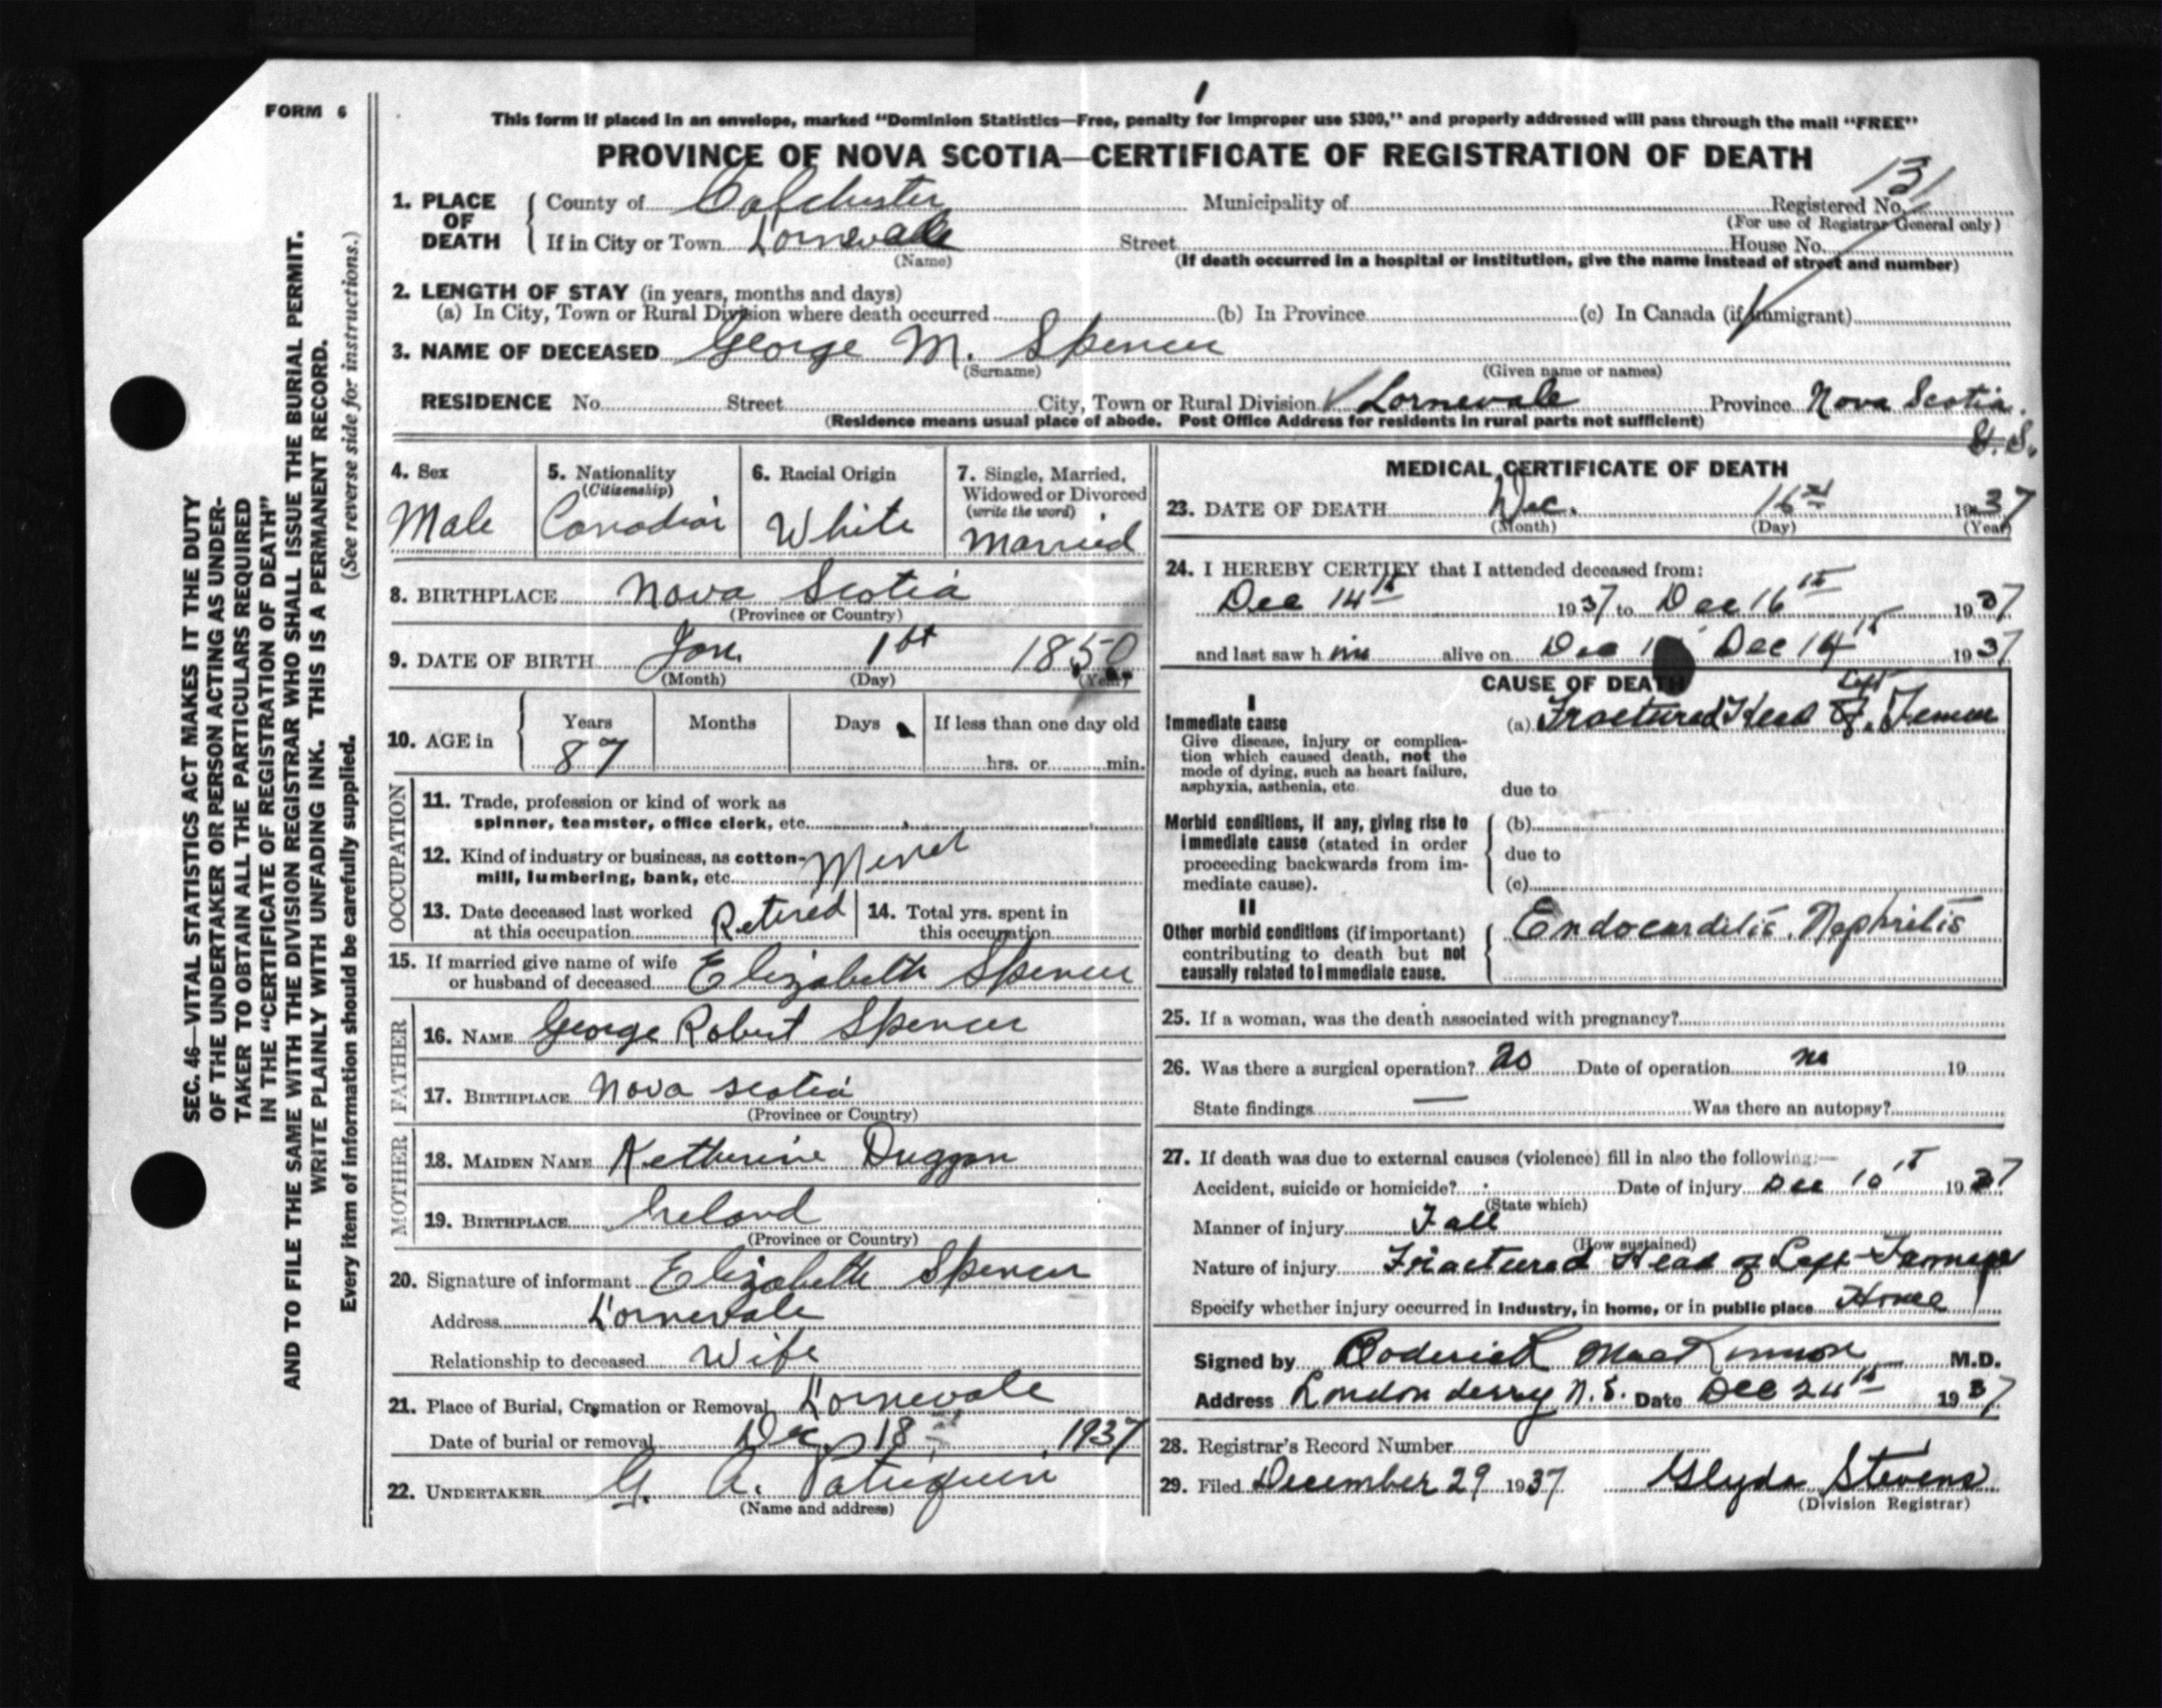 FORM 6
This form if placed in an envelope, marked "Dominion Statistics—Free, penalty for improper use $300," and properly addressed will pass through the mail "FREE"
PROVINCE OF NOVA SCOTIA—CERTIFICATE OF REGISTRATION OF DEATH
1. PLACE OF DEATH
County of Colchester Municipality of Registered No. 131
(For use of Registrar General only)
If in City or Town Lornevale Street House No.
(Name) (If death occurred in a hospital or institution, give the name instead of street and number)
2. LENGTH OF STAY (in years, months and days)
(a) In City, Town or Rural Division where death occurred (b) In Province (c) In Canada (if immigrant)
3. NAME OF DECEASED George M. Spencer
(Surname) (Given name or names)
RESIDENCE No. Street City, Town or Rural Division Lornevale Province Nova Scotia.
(Residence means usual place of abode. Post Office Address for residents in rural parts not sufficient)
4. Sex
Male
5. Nationality
(Citizenship)
Canadian
6. Racial Origin
White
7. Single, Married, Widowed or Divorced
(write the word)
Married
8. BIRTHPLACE Nova Scotia
(Province or Country)
9. DATE OF BIRTH Jan. 1st 1850
(Month) (Day) (Year)
10. AGE in Years Months Days If less than one day old
87 hrs. or min.
OCCUPATION
11. Trade, profession or kind of work as
spinner, teamster, office clerk, etc.
12. Kind of industry or business, as cotton-
mill, lumbering, bank, etc. Miner
13. Date deceased last worked
at this occupation Retired
14. Total yrs. spent in
this occupation
15. If married give name of wife
or husband of deceased Elizabeth Spencer
FATHER
16. NAME George Robert Spencer
17. BIRTHPLACE Nova Scotia
(Province or Country)
MOTHER
18. MAIDEN NAME Ketherine Duggan
19. BIRTHPLACE Ireland
(Province or Country)
20. Signature of informant Elizabeth Spencer
Address Lornevale
Relationship to deceased Wife
21. Place of Burial, Cremation or Removal Lornevale
Date of burial or removal Dec. 18 1937
22. UNDERTAKER G. A. Patriquin
(Name and address)
MEDICAL CERTIFICATE OF DEATH
23. DATE OF DEATH Dec. 16th 1937
(Month) (Day) (Year)
24. I HEREBY CERTIFY that I attended deceased from:
Dec 14th 1937 to Dec 16th 1937
and last saw h im alive on Dec 14th 1937
CAUSE OF DEATH
I
Immediate cause
Give disease, injury or complica-
tion which caused death, not the
mode of dying, such as heart failure,
asphyxia, asthenia, etc.
(a) Fractured Head of Left Femur
due to
Morbid conditions, if any, giving rise to
immediate cause (stated in order
proceeding backwards from im-
mediate cause).
(b)
due to
(c)
II
Other morbid conditions (if important)
contributing to death but not
causally related to immediate cause.
Endocarditis. Nephritis
25. If a woman, was the death associated with pregnancy?
26. Was there a surgical operation? no Date of operation no 19
State findings — Was there an autopsy?
27. If death was due to external causes (violence) fill in also the following:—
Accident, suicide or homicide? Date of injury Dec 10th 1937
(State which)
Manner of injury Fall
(How sustained)
Nature of injury Fractured Head of Left Femur
Specify whether injury occurred in industry, in home, or in public place Home
Signed by Roderick MacKinnon M.D.
Address Londonderry N.S. Date Dec 24th 1937
28. Registrar's Record Number
29. Filed December 29 1937 Glyda Stevens
(Division Registrar)
SEC. 46—VITAL STATISTICS ACT MAKES IT THE DUTY
OF THE UNDERTAKER OR PERSON ACTING AS UNDER-
TAKER TO OBTAIN ALL THE PARTICULARS REQUIRED
IN THE "CERTIFICATE OF REGISTRATION OF DEATH"
AND TO FILE THE SAME WITH THE DIVISION REGISTRAR WHO SHALL ISSUE THE BURIAL PERMIT.
WRITE PLAINLY WITH UNFADING INK. THIS IS A PERMANENT RECORD.
Every item of information should be carefully supplied. (See reverse side for instructions.)